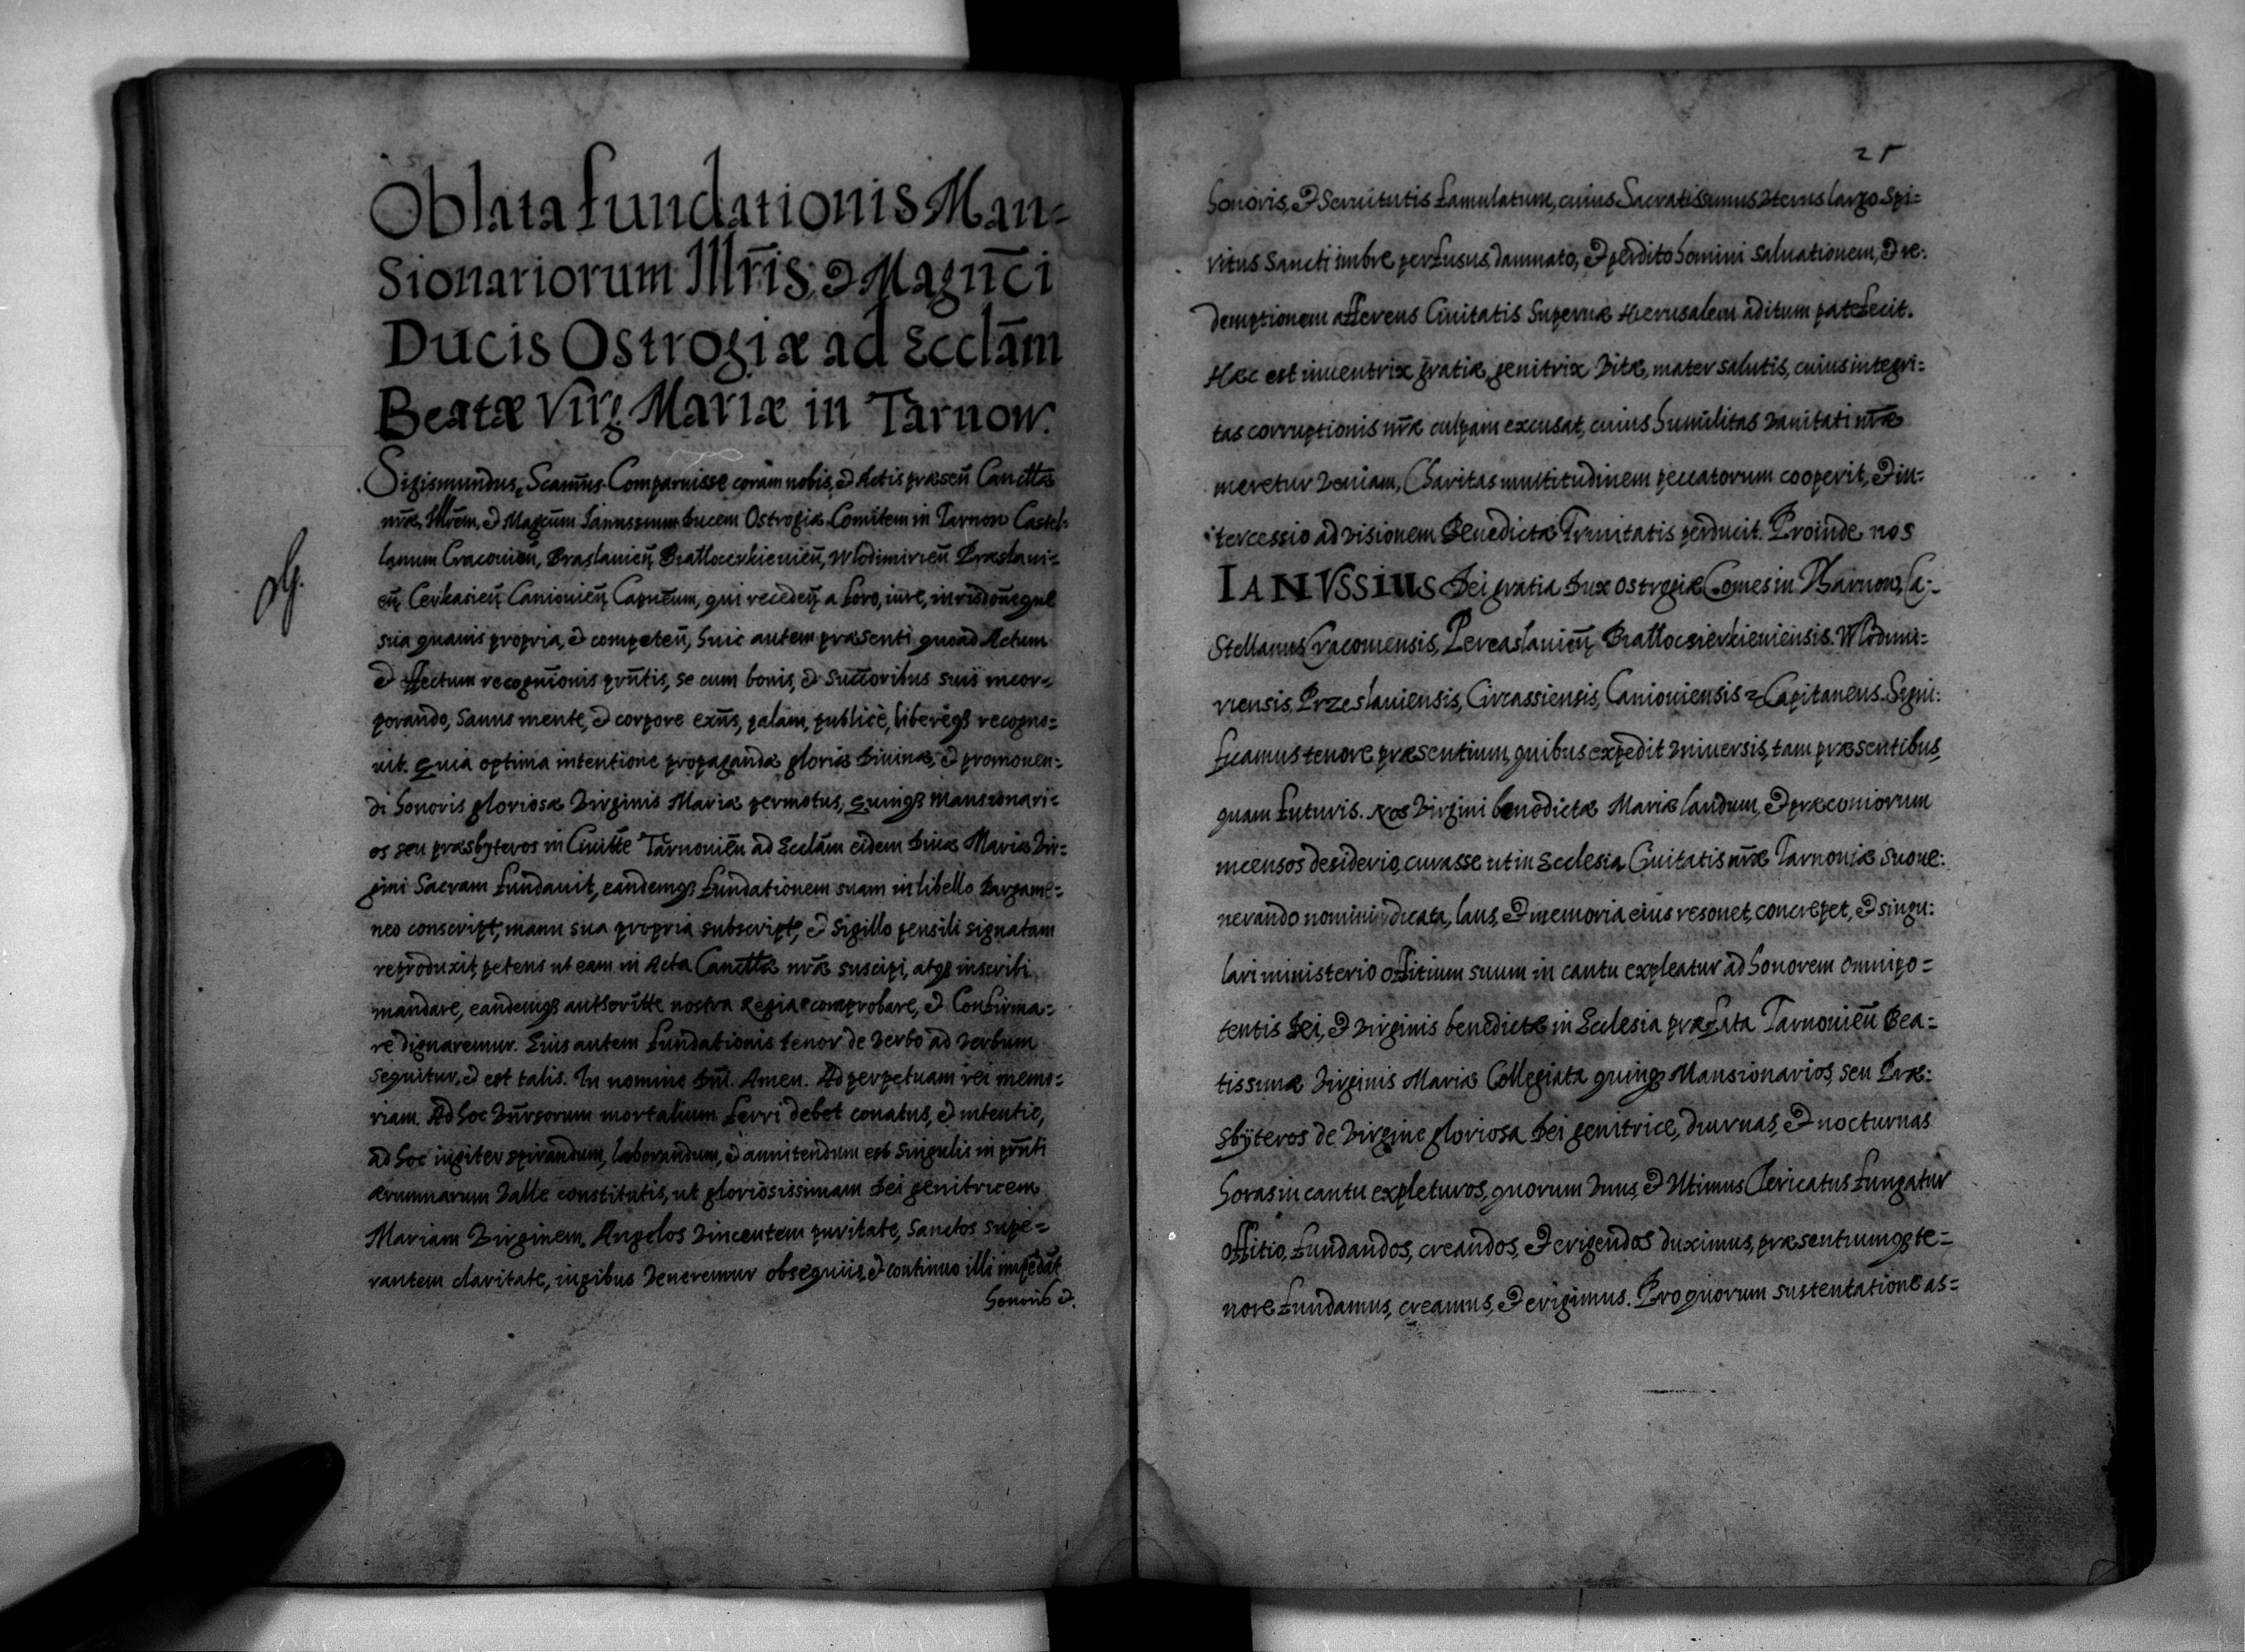 Oblata fundationis Man=
sionariorum Illr̄is, & Magn̄ci
Ducis Ostrogiæ ad Eccl̄am
Beatæ Virg Mariæ in Tarnow.
Sigismundus, Scam̄us. Comparuisse coram nobis, & Actis præsen̄ Canc̄ttæ
nr̄æ, Illr̄em, & Magcūm Janussium Ducem Ostrogiæ Comitem in Tarnow Castel=
lanum Cracovien̄, Braslavien̄ Wlodimirien̄ Præslavi=
en̄ Cerkasien̄ Caniovien̄ Capnēum, qui receden̄ a foro, iure, inrisdon̄eque
sua quavis propria, & competen̄, huic autem præsenti quoad Actum
& effectum recognīonis prn̄tis, se cum bonis, & succ̄oribus suis incor=
porando, sanus mente, & corpore exn̄s, palam, publicè, liberéq3 recogno=
vit. Quia optima intentione propagandæ gloriæ Divinæ, & promoven=
di honoris gloriosæ Virginis Mariæ permotus, quinq3 Mansionari=
os seu præsbyteros in Civit̄te Tarnovien̄ ad Eccl̄am eidem Divæ Mariæ Vir=
gini Sacram fundavit, eandemq3 fundationem suam in libello pargame=
neo conscript, manu sua propria subscript, & Sigillo pensili signatam
reproduxit, petens ut eam in Acta Canc̄ttæ nr̄æ suscipi, atq3 inscribi
mandare, eandemq3 authorit̄te nostra Regia comprobare, & Confirma=
re dignaremur. Eius autem fundationis tenor de verbo ad verbum
sequitur, & est talis. In nomine Dn̄i. Amen. Ad perpetuam rei memo=
riam. Ad hoc Vn̄rsorum mortalium ferri debet conatus, & intentio,
ad hoc iugiter spirandum, laborandum, & annitendum est singulis in prn̄ti
ærumnarum valle constitutis, ut gloriosissimam Dei genitricem
Mariam Virginem, Angelos vincentem puritate, Sanctos supe=
rantem claritate, iugibus veneremur obsequiis, & continuo illi impēdāt
honoris &.
25
honoris, & Servitutis famulatum, cuius Sacratissimus Uterus largo Spi=
ritus Sancti imbre perfusus, damnato, & perdito homini salvationem, & re=
demptionem afferens Civitatis Supernæ Hierusalem aditum patefecit.
Hæc est inventrix gratiæ, genitrix Vitæ, mater salutis, cuius integri=
tas corruptionis nr̄æ culpam excusat, cuius humilitas vanitati nr̄æ
meretur veniam, Charitas multitudinem peccatorum cooperit, & in=
tercessio ad visionem Benedictæ Trinitatis perducit. Proinde nos
IANVSSIUS Dei gratia Dux Ostrogiæ Comes in Tharnow, Ca=
stellanus Cracoviensis, Pereaslavien̄ Wlodimi=
riensis, Przeslaviensis, Circassiensis, Canioviensis & Capitaneus. Signi=
ficamus tenore præsentium, quibus expedit Universis, tam præsentibus,
quam futuris. Nos Virgini benedictæ Mariæ laudum, & præconiorum
incensos desiderio, curasse ut in Ecclesia Civitatis nr̄æ Tarnoviæ suo ve=
nerando nomini dicata, laus, & memoria eius resonet, concrepet, & singu=
lari ministerio offitium suum in cantu expleatur ad honorem omnipo=
tentis Dei, & Virginis benedictæ in Ecclesia præfata Tarnovien̄ Bea=
tissimæ Virginis Mariæ Collegiata quinq3 Mansionarios, seu Præ=
sbÿteros de Virgine gloriosa Dei genitrice, diurnas, & nocturnas
horas in cantu expleturos, quorum Unus, & Ultimus Clericatus fungatur
offitio, fundandos, creandos, & erigendos duximus, præsentiumq3 te=
nore fundamus, creamus, & erigimus. Pro quorum sustentatione as=